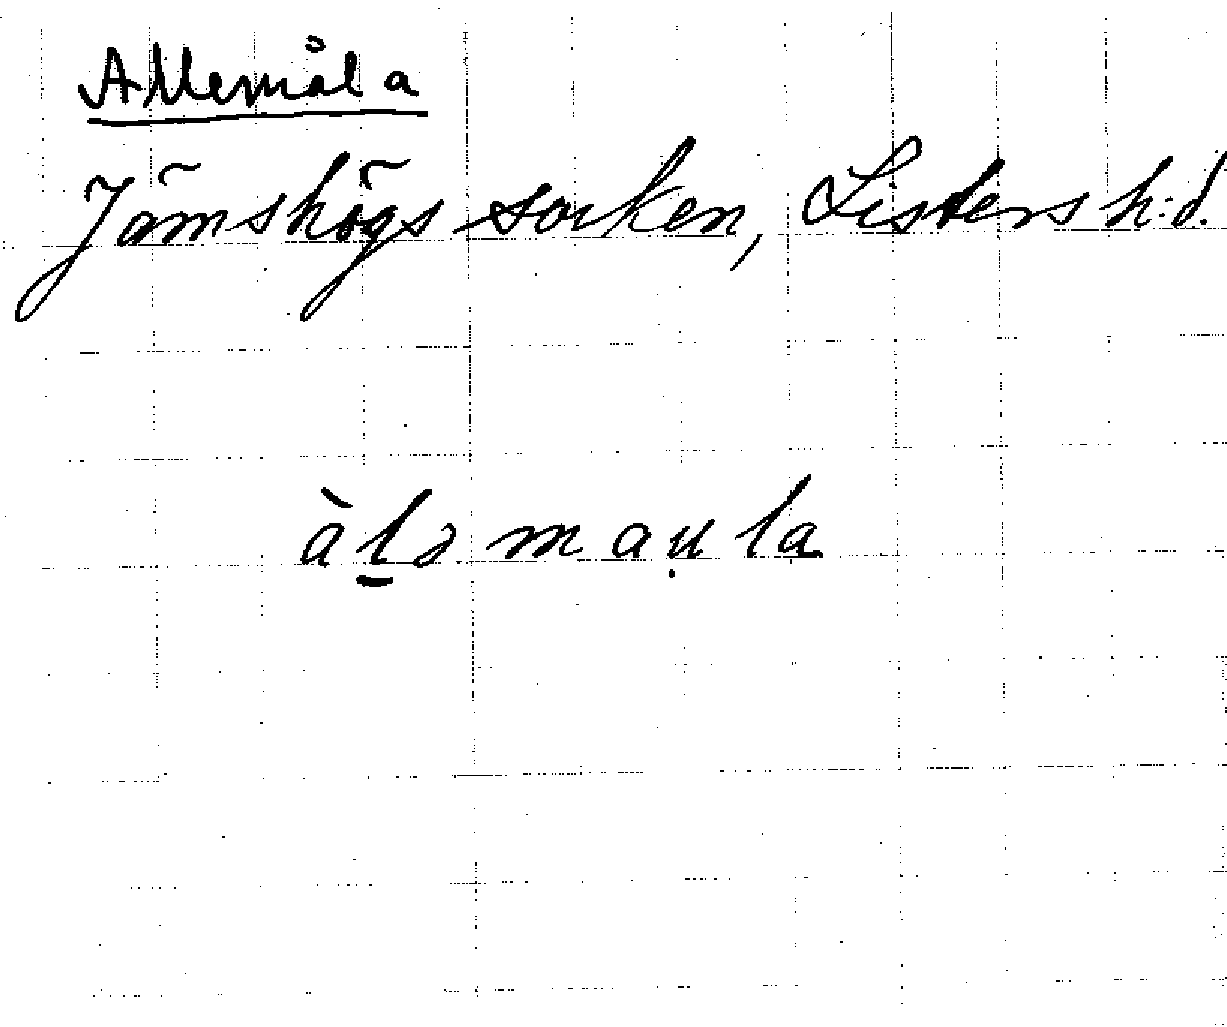 Allemåla
Jämshögs socken, Listers h:d.
àl̠ə mau̩la